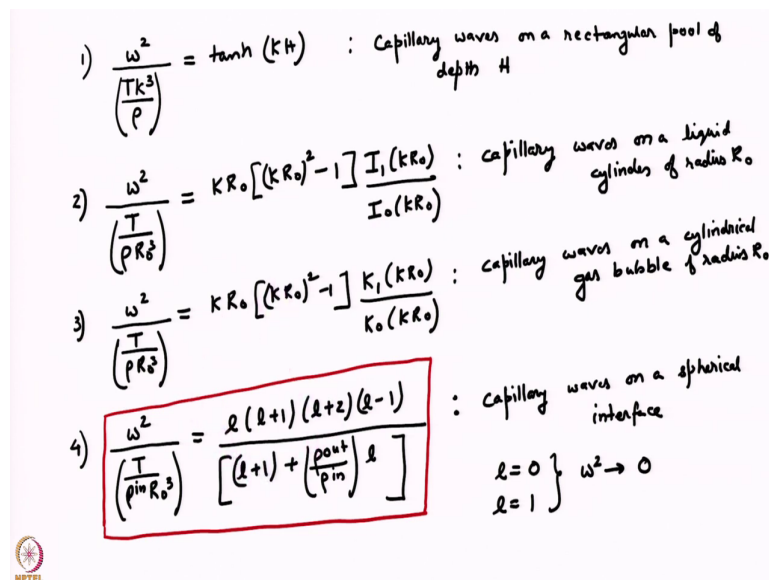 1) ω² / (Tk³/ρ) = tanh (KH) : Capillary waves on a rectangular pool of
depth H
2) ω² / (T/ρR₀³) = KR₀ [(KR₀)² - 1] I₁(KR₀) / I₀(KR₀) : capillary waves on a liquid
cylinder of radius R₀
3) ω² / (T/ρR₀³) = KR₀ [(KR₀)² - 1] K₁(KR₀) / K₀(KR₀) : capillary waves on a cylindrical
gas bubble of radius R₀
4) ω² / (T/ρⁱⁿR₀³) = l (l+1) (l+2) (l-1) / [(l+1) + (ρᵒᵘᵗ/ρⁱⁿ) l] : capillary waves on a spherical
interface
l = 0 } ω² → 0
l = 1
NPTEL